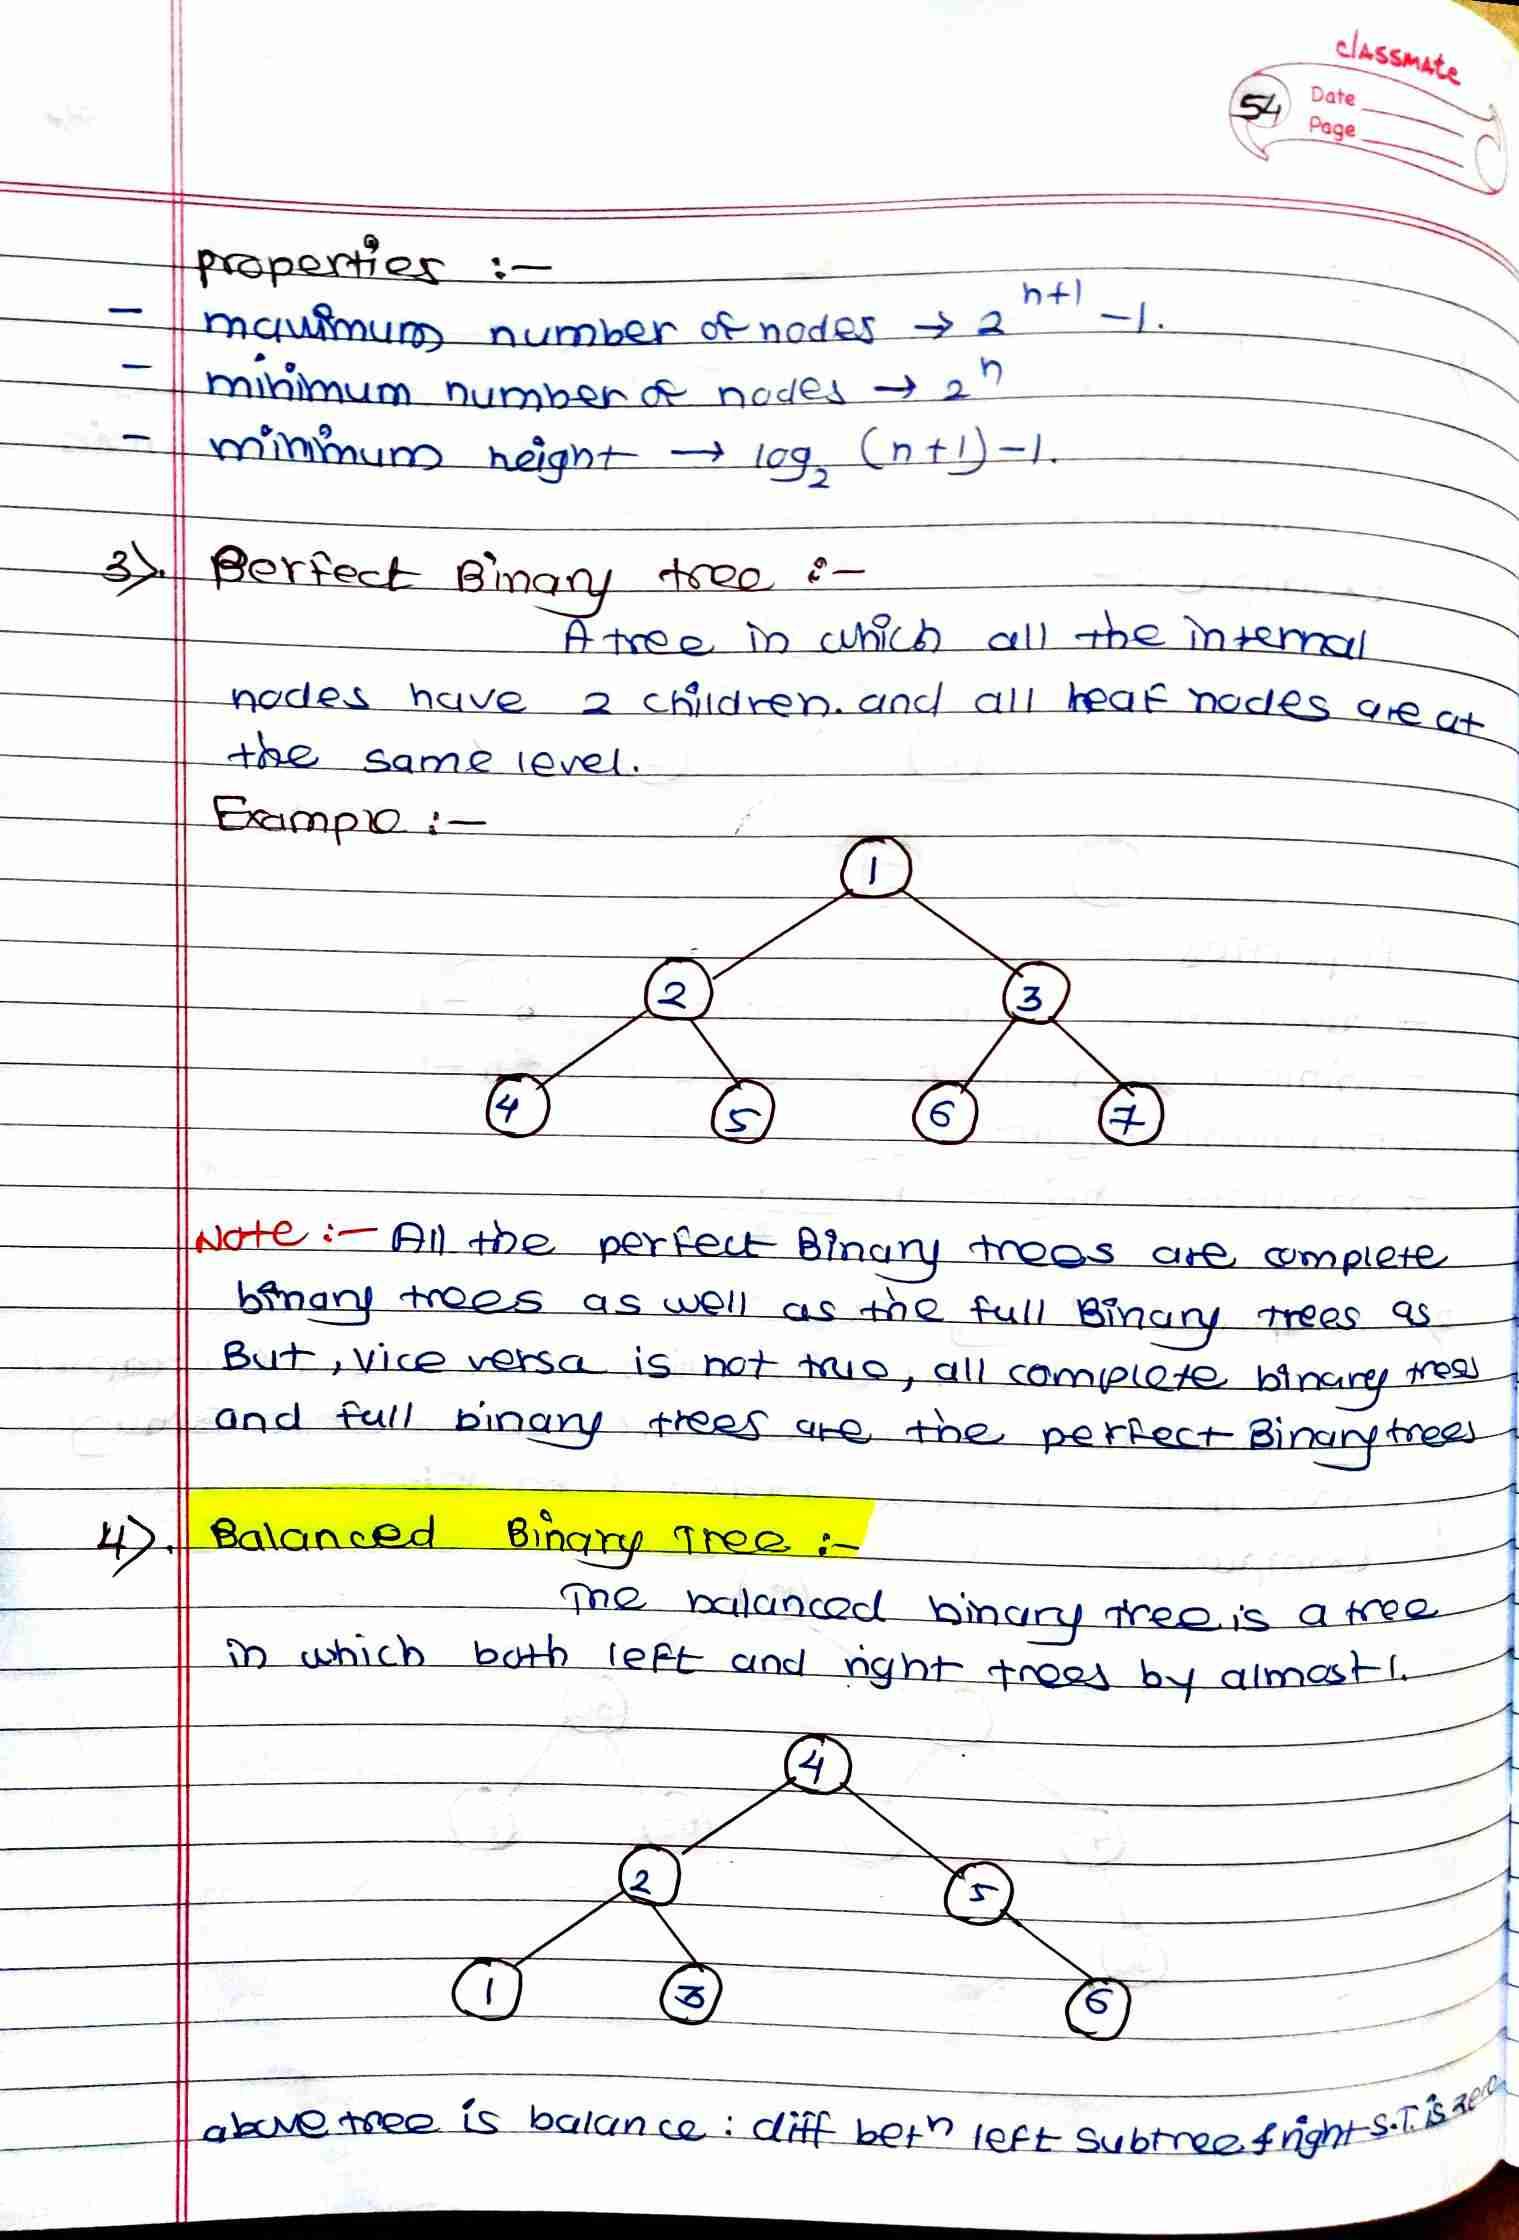 classmate
54
Date
Page
properties :-
- maximum number of nodes → 2^{n+1} -1.
- minimum number of nodes → 2^n
- minimum height → log₂ (n+1)-1.
3). Perfect Binary tree :-
A tree in which all the internal
nodes have 2 children. and all leaf nodes are at
the same level.
Example :-
1
2 3
4 5 6 7
Note :- All the perfect Binary trees are complete
binary trees as well as the full Binary trees as
But, vice versa is not true, all complete binary trees
and full binary trees are the perfect Binary trees
4). Balanced Binary Tree :-
The balanced binary tree is a tree
in which both left and right trees by almost 1.
4
2 5
1 3 6
above tree is balance : diff betn left subtree & right S.T. is zero